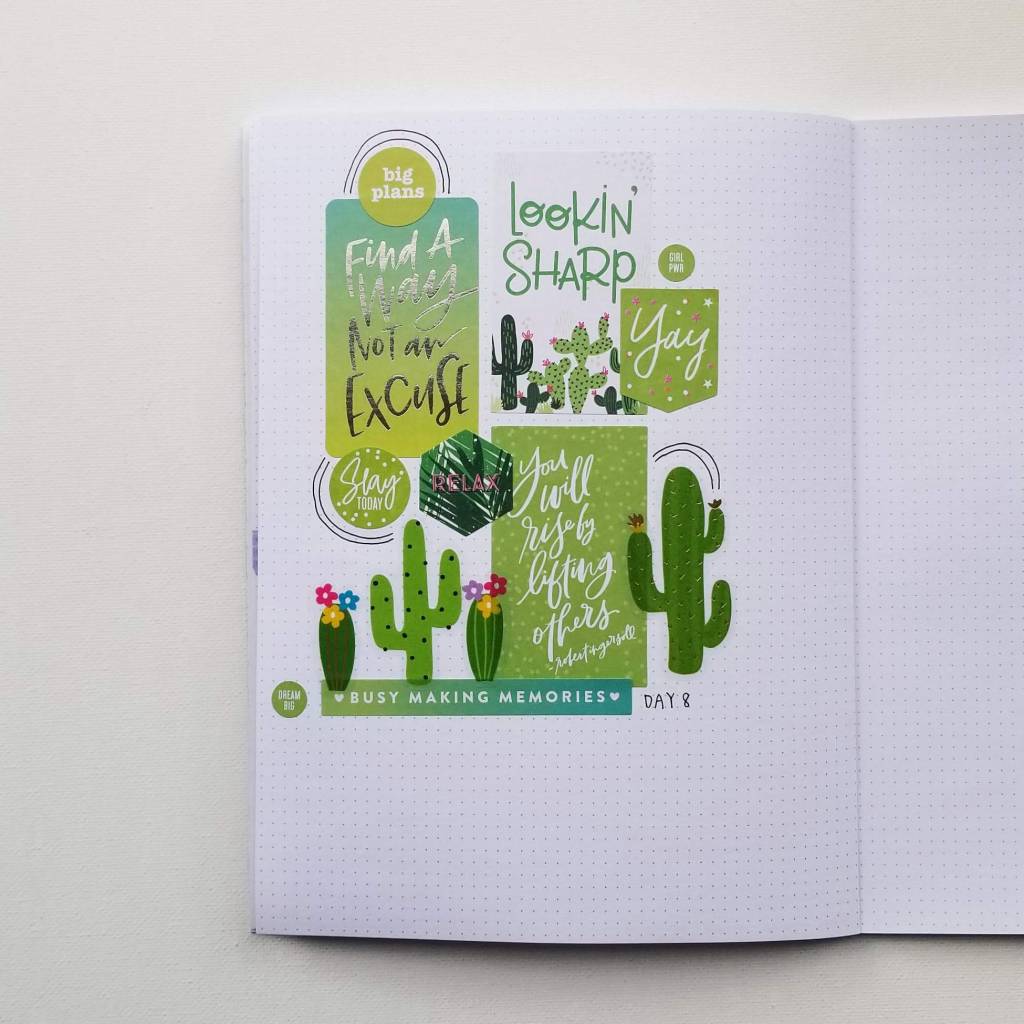 big
plans
Find A
Way
Not an
Excuse
Lookin'
Sharp
GIRL
PWR
Yay
Slay
TODAY
RELAX
You
will
rise by
lifting
others
-robert ingersoll
DREAM
BIG
BUSY MAKING MEMORIES
DAY 8